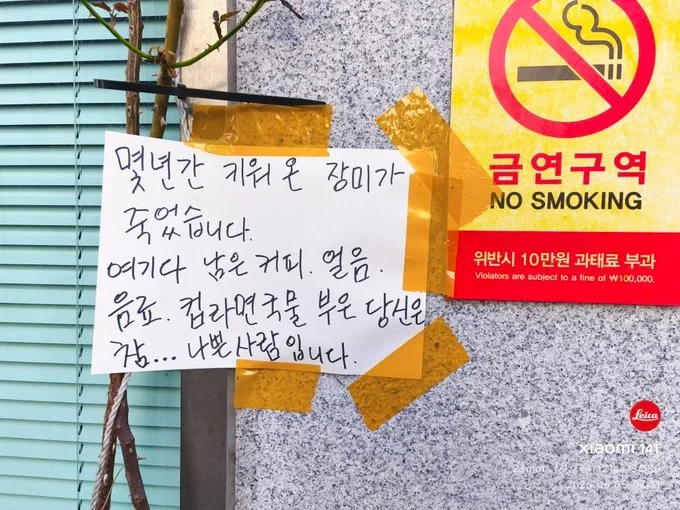 몇년간 키워 온 장미가
죽었습니다.
여기다 남은 커피. 얼음.
음료. 컵라면국물 부은 당신은
참... 나쁜 사람입니다.
금연구역
NO SMOKING
위반시 10만원 과태료 부과
Violators are subject to a fine of ₩100,000.
Leica
xiaomi 14T